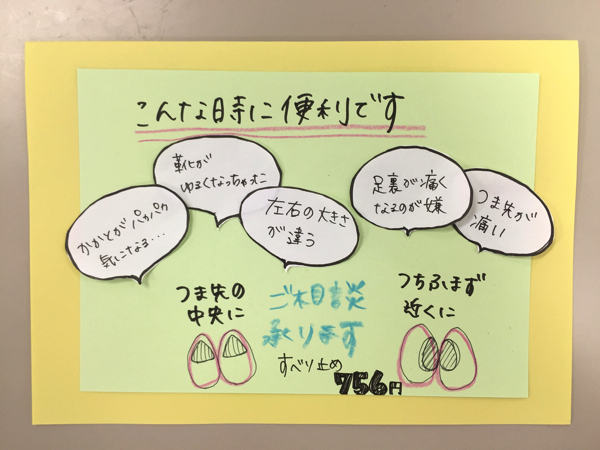 こんな時に便利です
靴が
ゆるくなっちゃった
かかとがパカパカ
気になる・・・
左右の大きさ
が違う
足裏が痛く
なるのが嫌
つま先が
痛い
つま先の
中央に
ご相談
承ります
すべり止め
756円
つちふまず
近くに